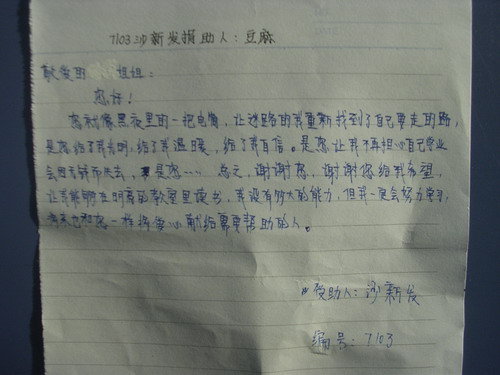 7103沙新发捐助人：豆麻
敬爱的 姐姐：
您好！
您就像黑夜里的一把电筒，让迷路的我重新找到了自己要走的路，
是您给了我光明，给了我温暖，给了我自信。是您让我不再担心自己学业
会因无钱而失去，是您……总之，谢谢您，谢谢您给我希望，
让我能够在明亮的教室里读书，我没有多大的能力，但我一定会努力学习，
将来也和您一样将爱心献给需要帮助的人。
受助人：沙新发
编号：7103